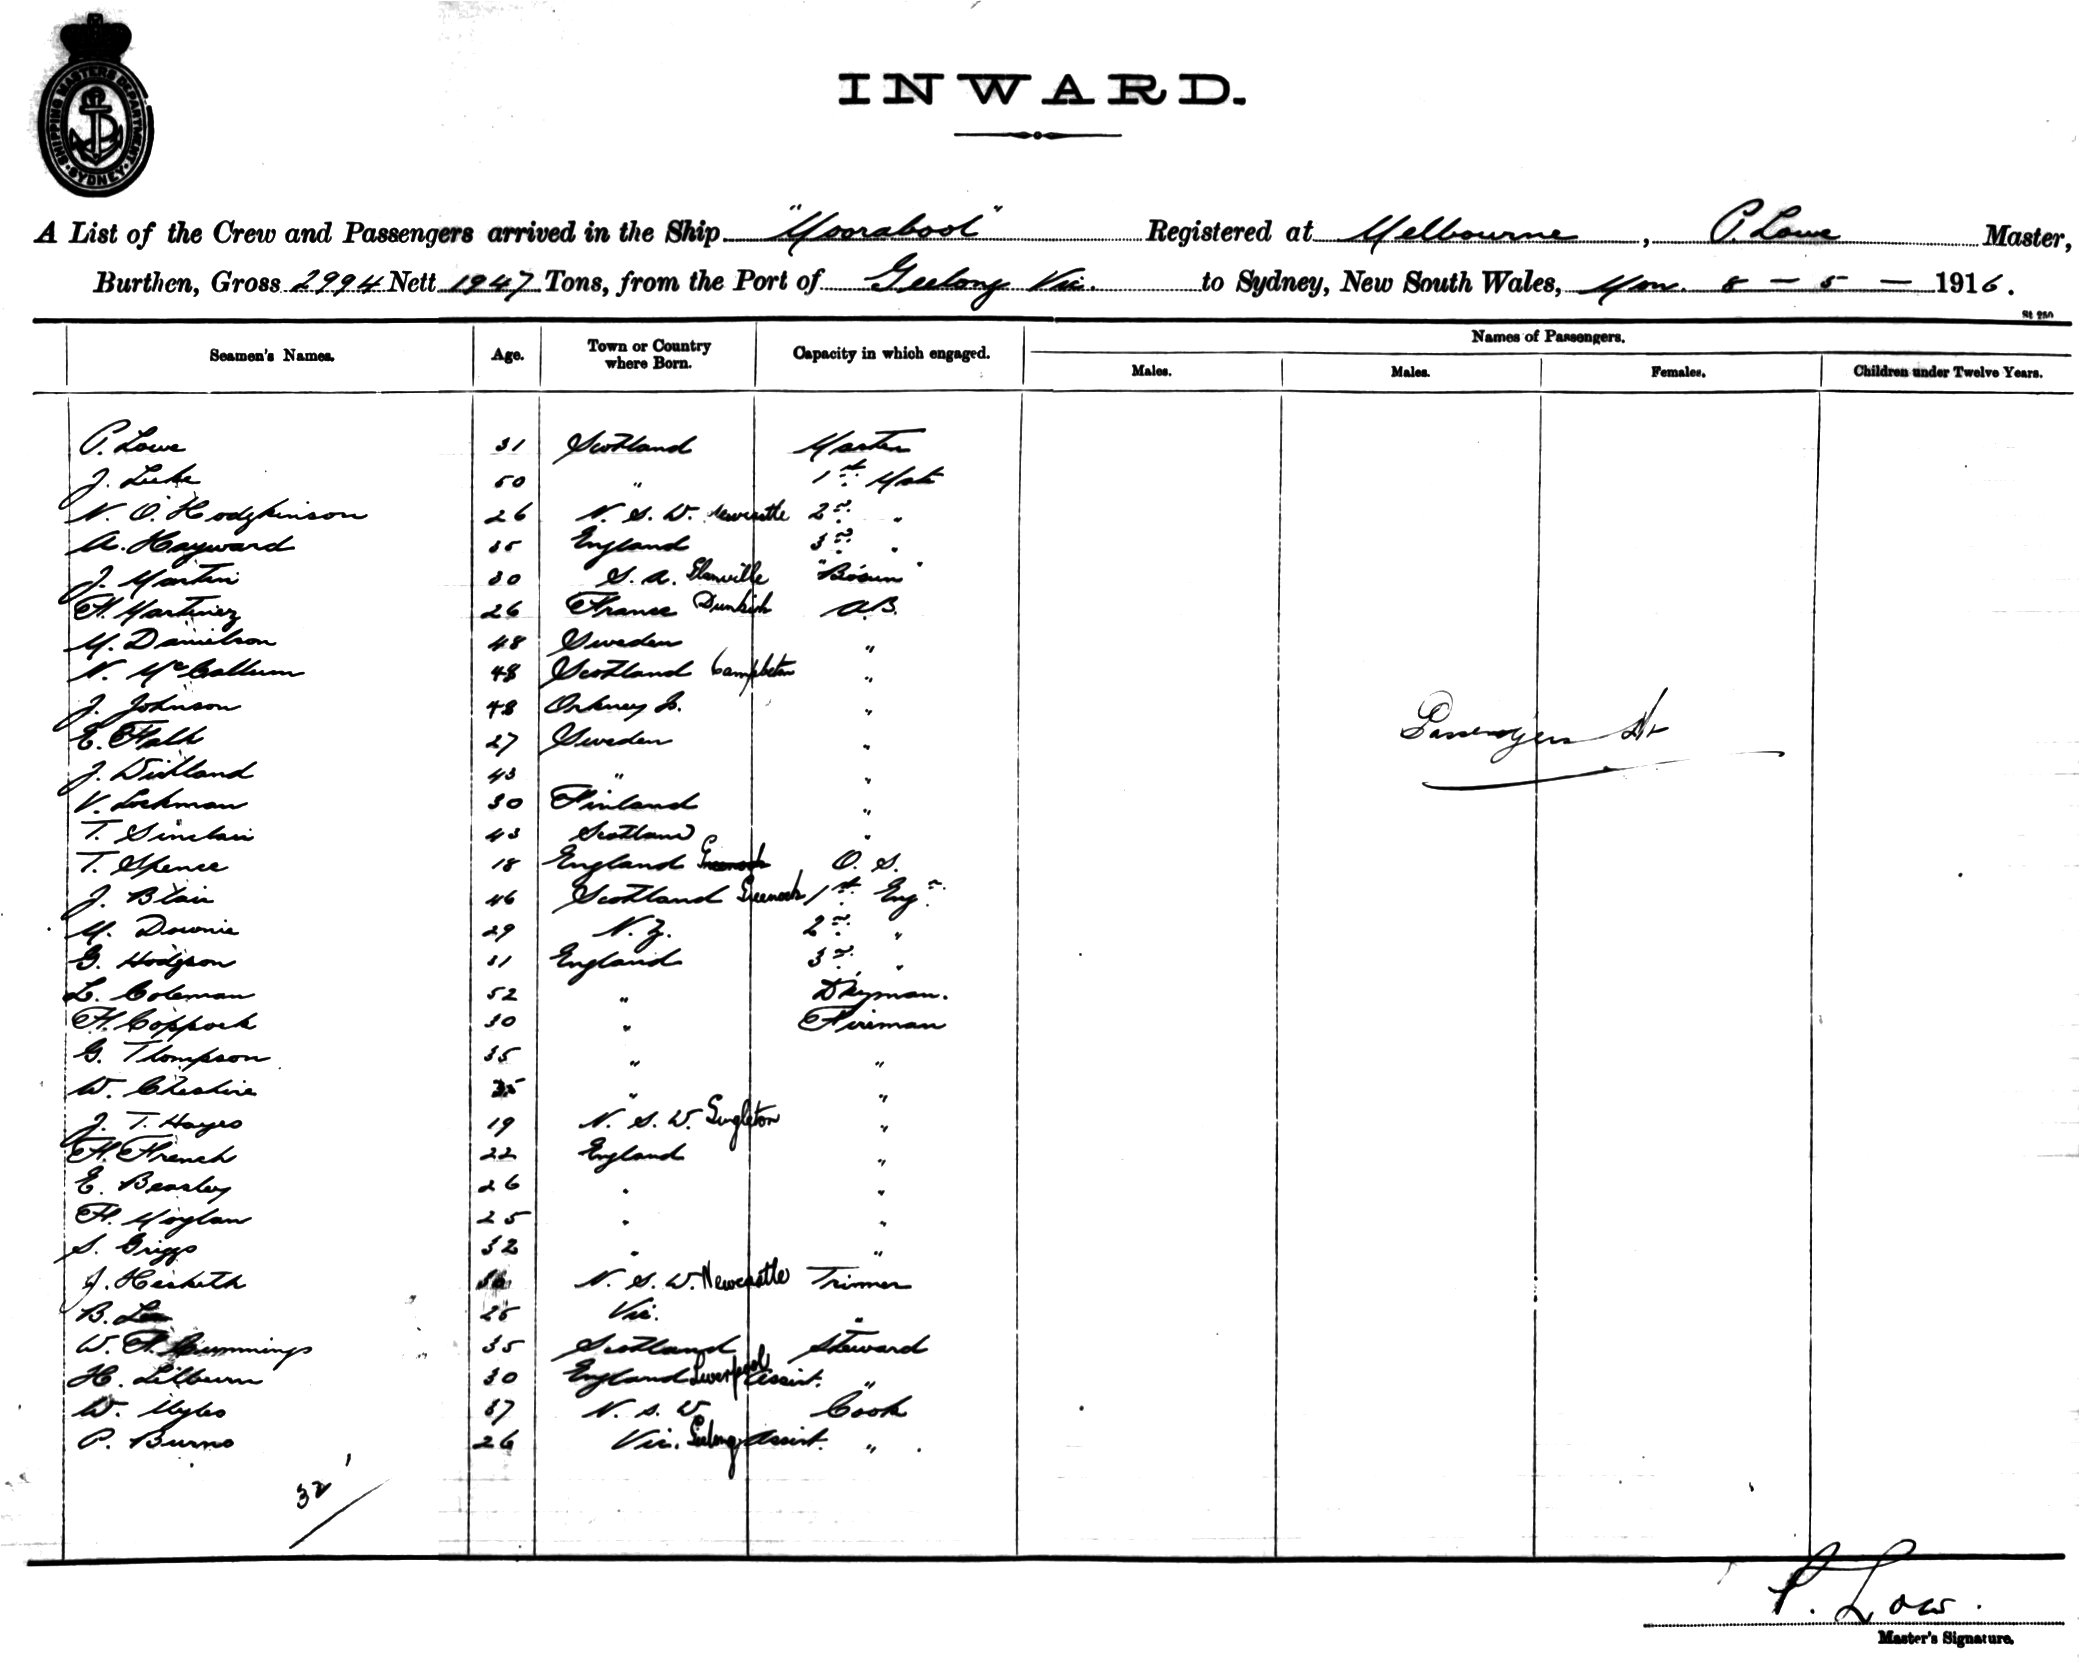 SHIPPING MASTERS DEPARTMENT SYDNEY
INWARD.
A List of the Crew and Passengers arrived in the Ship "Moorabool" Registered at Melbourne, P. Lowe Master,
Burthen, Gross 2994 Nett 1947 Tons, from the Port of Geelong Vic. to Sydney, New South Wales, Mon. 8 - 5 - 1916.
St 250
Seamen's Names. Age. Town or Country where Born. Capacity in which engaged. Names of Passengers.
Males. Males. Females. Children under Twelve Years.
P. Lowe 31 Scotland Master
J. 50 " 1st Mate
N. O. Hodgkinson 26 N. S. W. Newcastle 2nd "
A. Hayward 35 England 3rd "
J. Martin 30 S. A. Glanville "Bosun"
F. Martinez 26 France Dunkirk A.B.
M. Danielson 48 Sweden "
N. McCallum 48 Scotland "
J. Johnson 48 Orkney Is. "
E. Falk 27 Sweden "
J. 43 " "
V. Lockman 30 Finland "
T. Sinclair 43 Scotland "
T. Spence 18 England O. S.
J. Blair 46 Scotland Greenock 1st Engr.
M. Downie 29 N. Z. 2nd "
G. Hodgson 31 England 3rd "
L. Coleman 52 " D'kyman.
F. Coppock 30 " Fireman
G. Thompson 35 " "
W. Cheshire 35 " "
J. T. Hayes 19 N. S. W. Singleton "
F. French 22 England "
E. Beasley 26 " "
F. Moylan 25 " "
S. Griggs 32 " "
J. Hesketh N. S. W. Newcastle Trimmer
B. Lee 25 Vic. "
W. F. Cummings 35 Scotland Steward
H. Lilburn 30 England Liverpool Assist. "
W. Myles 37 N. S. W Cook
P. Burns 26 Vic. Geelong Assist. "
Passengers Nil
32
P. Low.
Master's Signature.